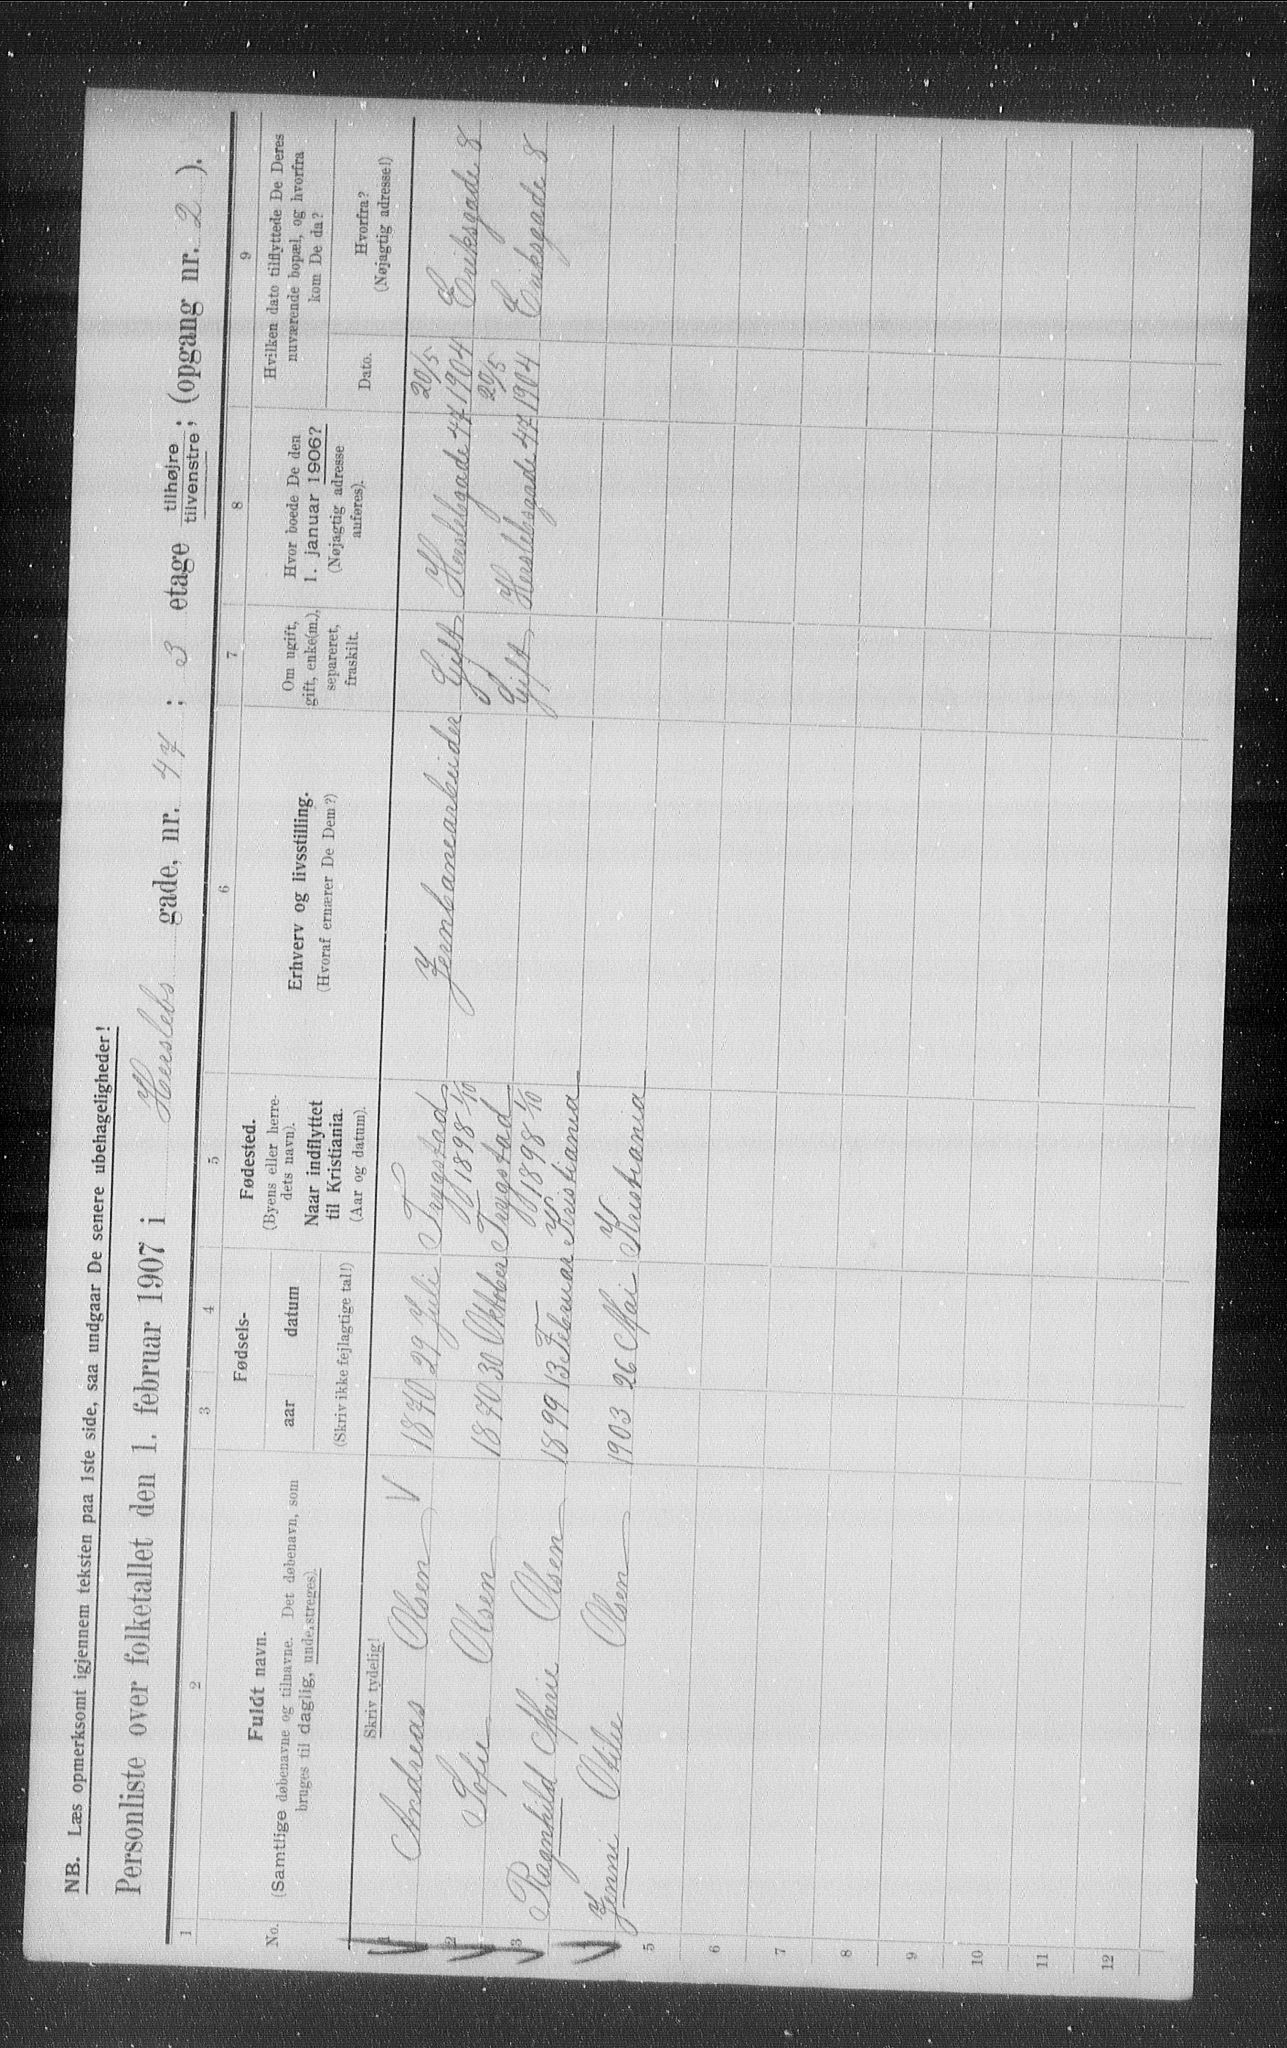 NB. Læs opmerksomt igjennem teksten paa 1ste side, saa undgaar De senere ubehageligheder!
Personliste over folketallet den 1. februar 1907 i Herslebs gade, nr. 47 ; 3 etage tilhøjre / tilvenstre ; (opgang nr. 2 ).
1 2 3 4 5 6 7 8 9
No.
Fuldt navn.
(Samtlige døbenavne og tilnavne. Det døbenavn, som
bruges til daglig, understreges).
Skriv tydelig!
Fødsels-
aar datum
(Skriv ikke fejlagtige tal!)
Fødested.
(Byens eller herre-
dets navn).
Naar indflyttet
til Kristiania.
(Aar og datum).
Erhverv og livsstilling.
(Hvoraf ernærer De Dem?)
Om ugift,
gift, enke(m.),
separeret,
fraskilt.
Hvor boede De den
1. januar 1906?
(Nøjagtig adresse
anføres).
Hvilken dato tilflyttede De Deres
nuværende bopæl, og hvorfra
kom De da?
Dato.
Hvorfra?
(Nøjagtig adresse!)
1 Andreas Olsen V 1870 29 Juli Trygstad 1898 1/10 Jernbanearbeider Gift Herslebsgade 47 20/5 1904 Eriksgade 8
2 Sofie Olsen 1870 30 Oktober Trygstad 1898 1/10 Gift Herslebsgade 47 20/5 1904 Eriksgade 8
3 Ragnhild Marie Olsen 1899 13 Februar Kristiania
Jenni Otilie Olsen 1903 26 Mai Kristiania
5
6
7
8
9
10
11
12